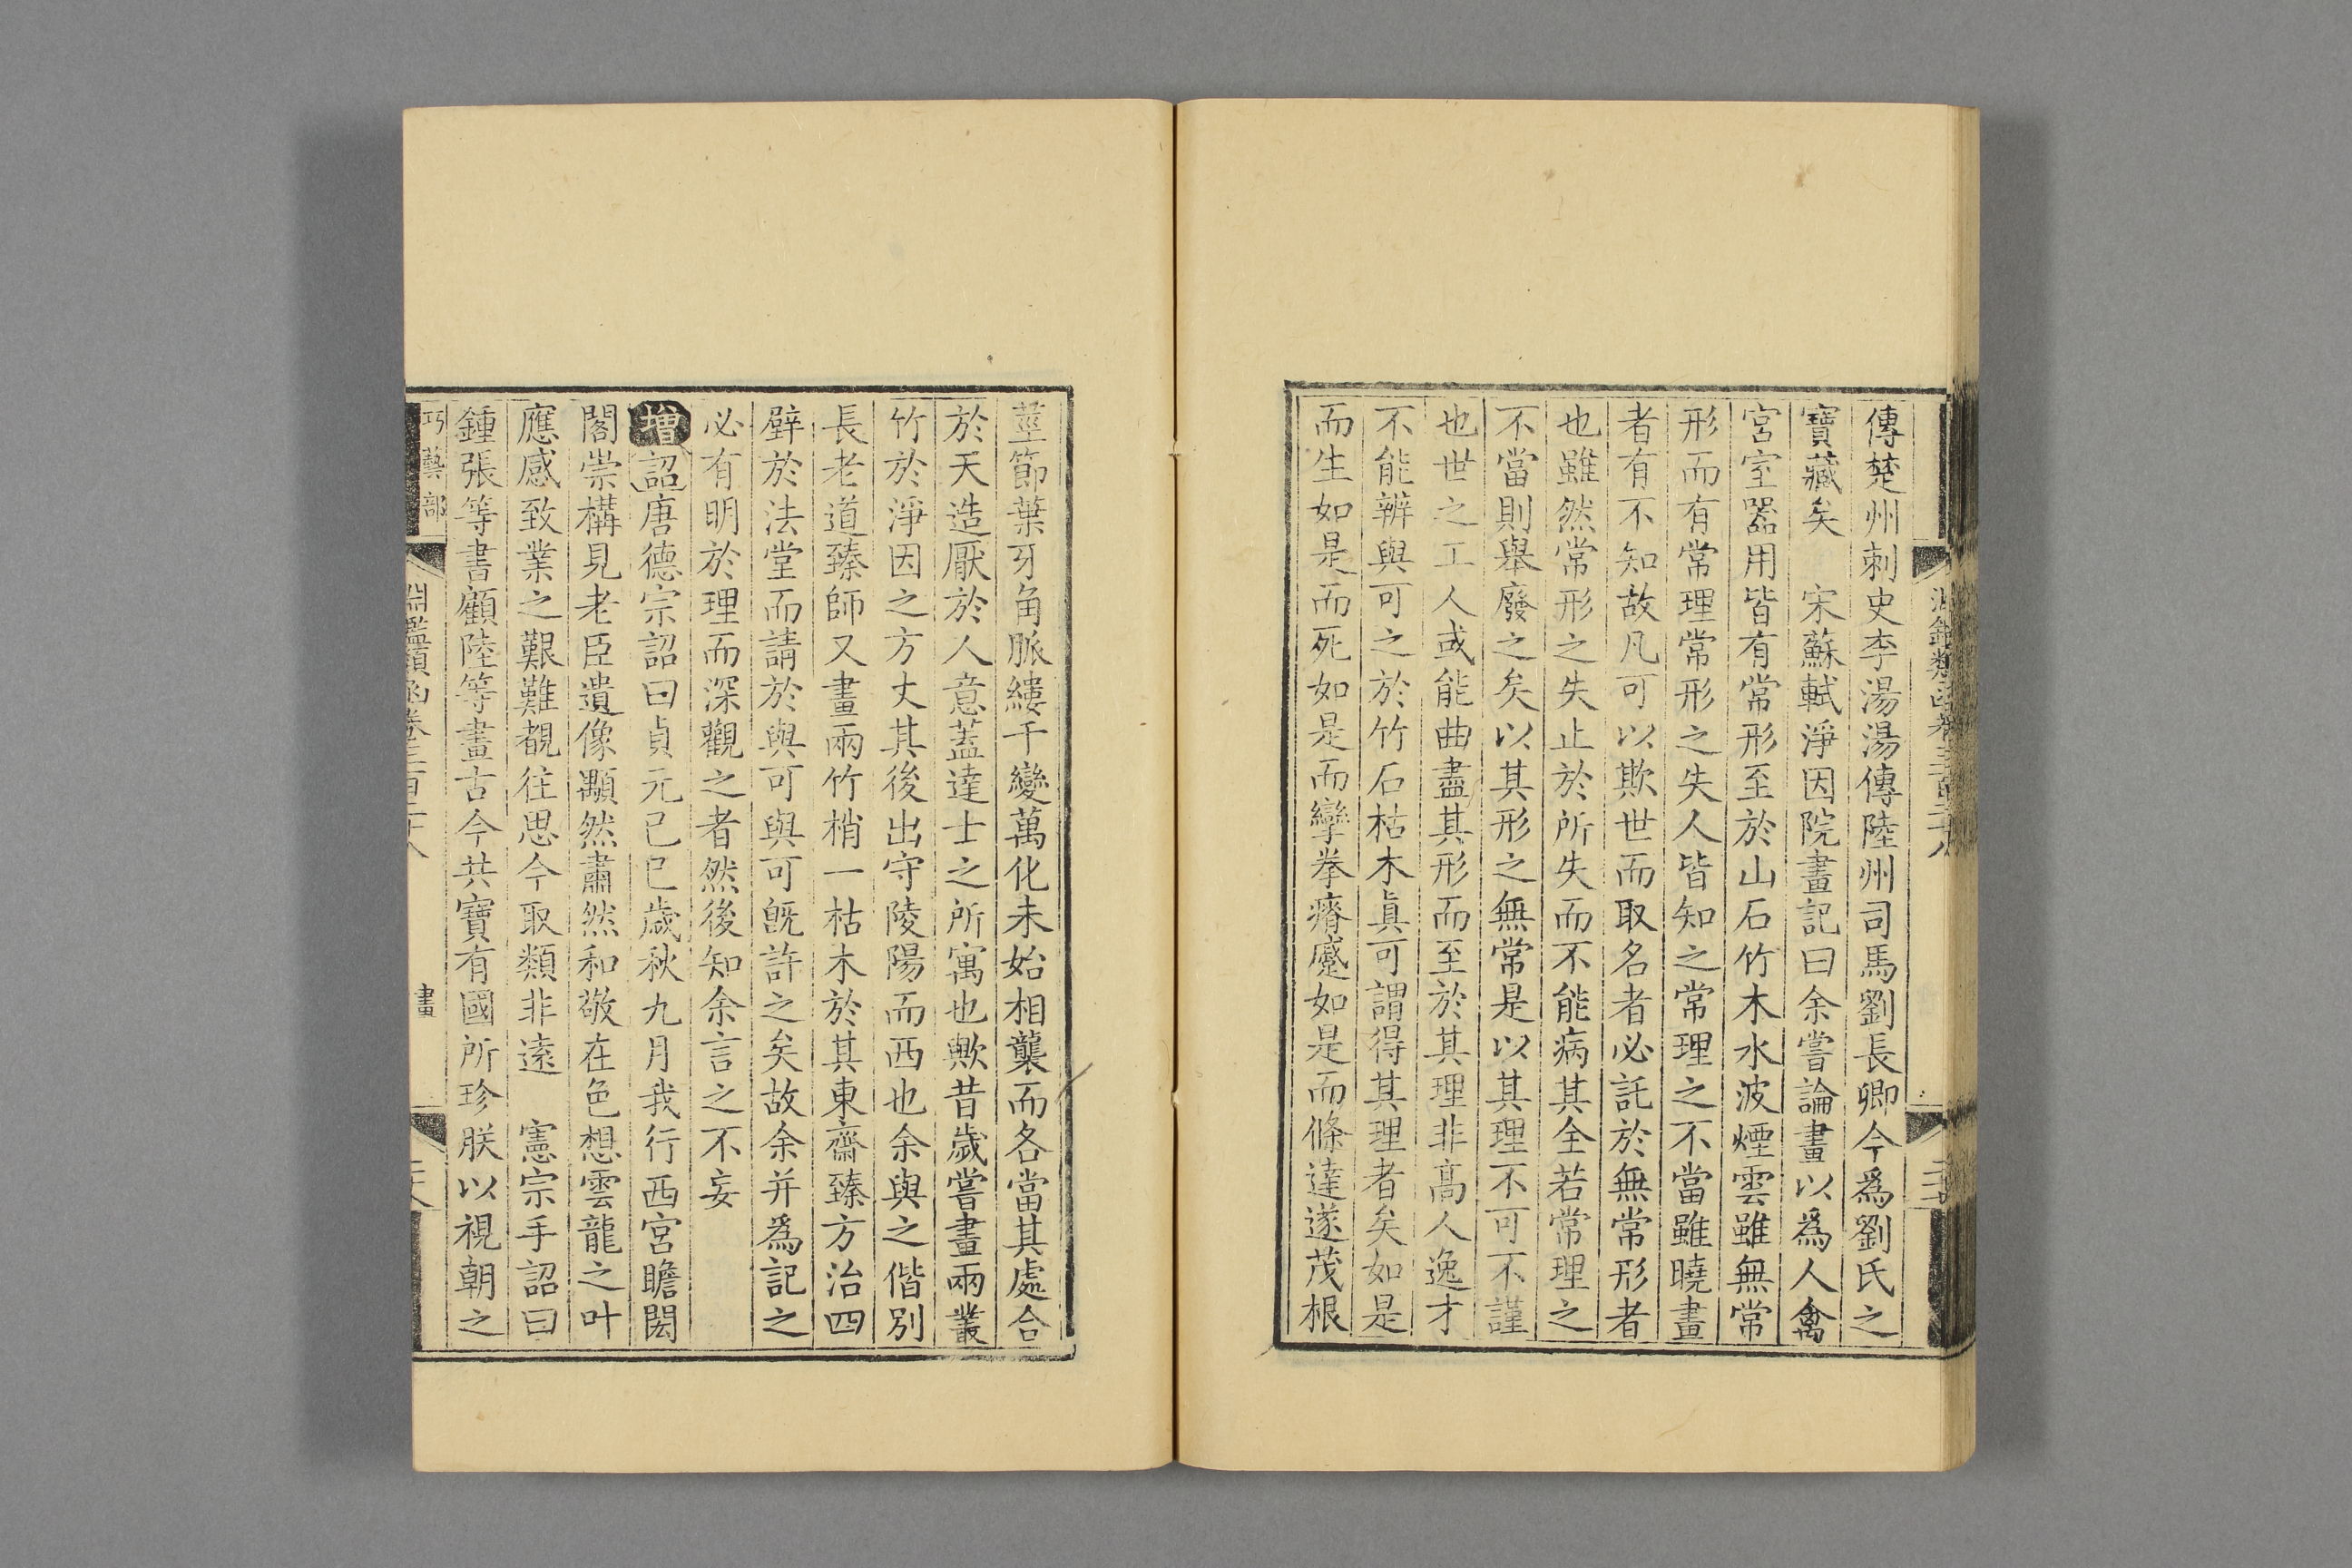 傳楚州刺史李湯湯傳陸州司馬劉長卿今爲劉氏之
寶藏矣　宋蘇軾淨因院畫記曰余嘗論畫以爲人禽
宮室器用皆有常形至於山石竹木水波煙雲雖無常
形而有常理常形之失人皆知之常理之不當雖曉畫
者有不知故凡可以欺世而取名者必託於無常形者
也雖然常形之失止於所失而不能病其全若常理之
不當則舉廢之矣以其形之無常是以其理不可不謹
也世之工人或能曲盡其形而至於其理非高人逸才
不能辨與可之於竹石枯木眞可謂得其理者矣如是
而生如是而死如是而攣拳瘠蹙如是而條達遂茂根
莖節葉牙角脈縷千變萬化未始相襲而各當其處合
於天造厭於人意蓋達士之所寓也歟昔歲嘗畫兩叢
竹於淨因之方丈其後出守陵陽而西也余與之偕別
長老道臻師又畫兩竹梢一枯木於其東齋臻方治四
壁於法堂而請於與可與可旣許之矣故余并爲記之
必有明於理而深觀之者然後知余言之不妄
增詔唐德宗詔曰貞元己巳歲秋九月我行西宮瞻閎
閣崇構見老臣遺像顒然肅然和敬在色想雲龍之叶
應感致業之艱難覩往思今取類非遠　憲宗手詔曰
鍾張等書顧陸等畫古今共寶有國所珍朕以視朝之
巧藝部
淵鑑類函卷三百二十八
畫